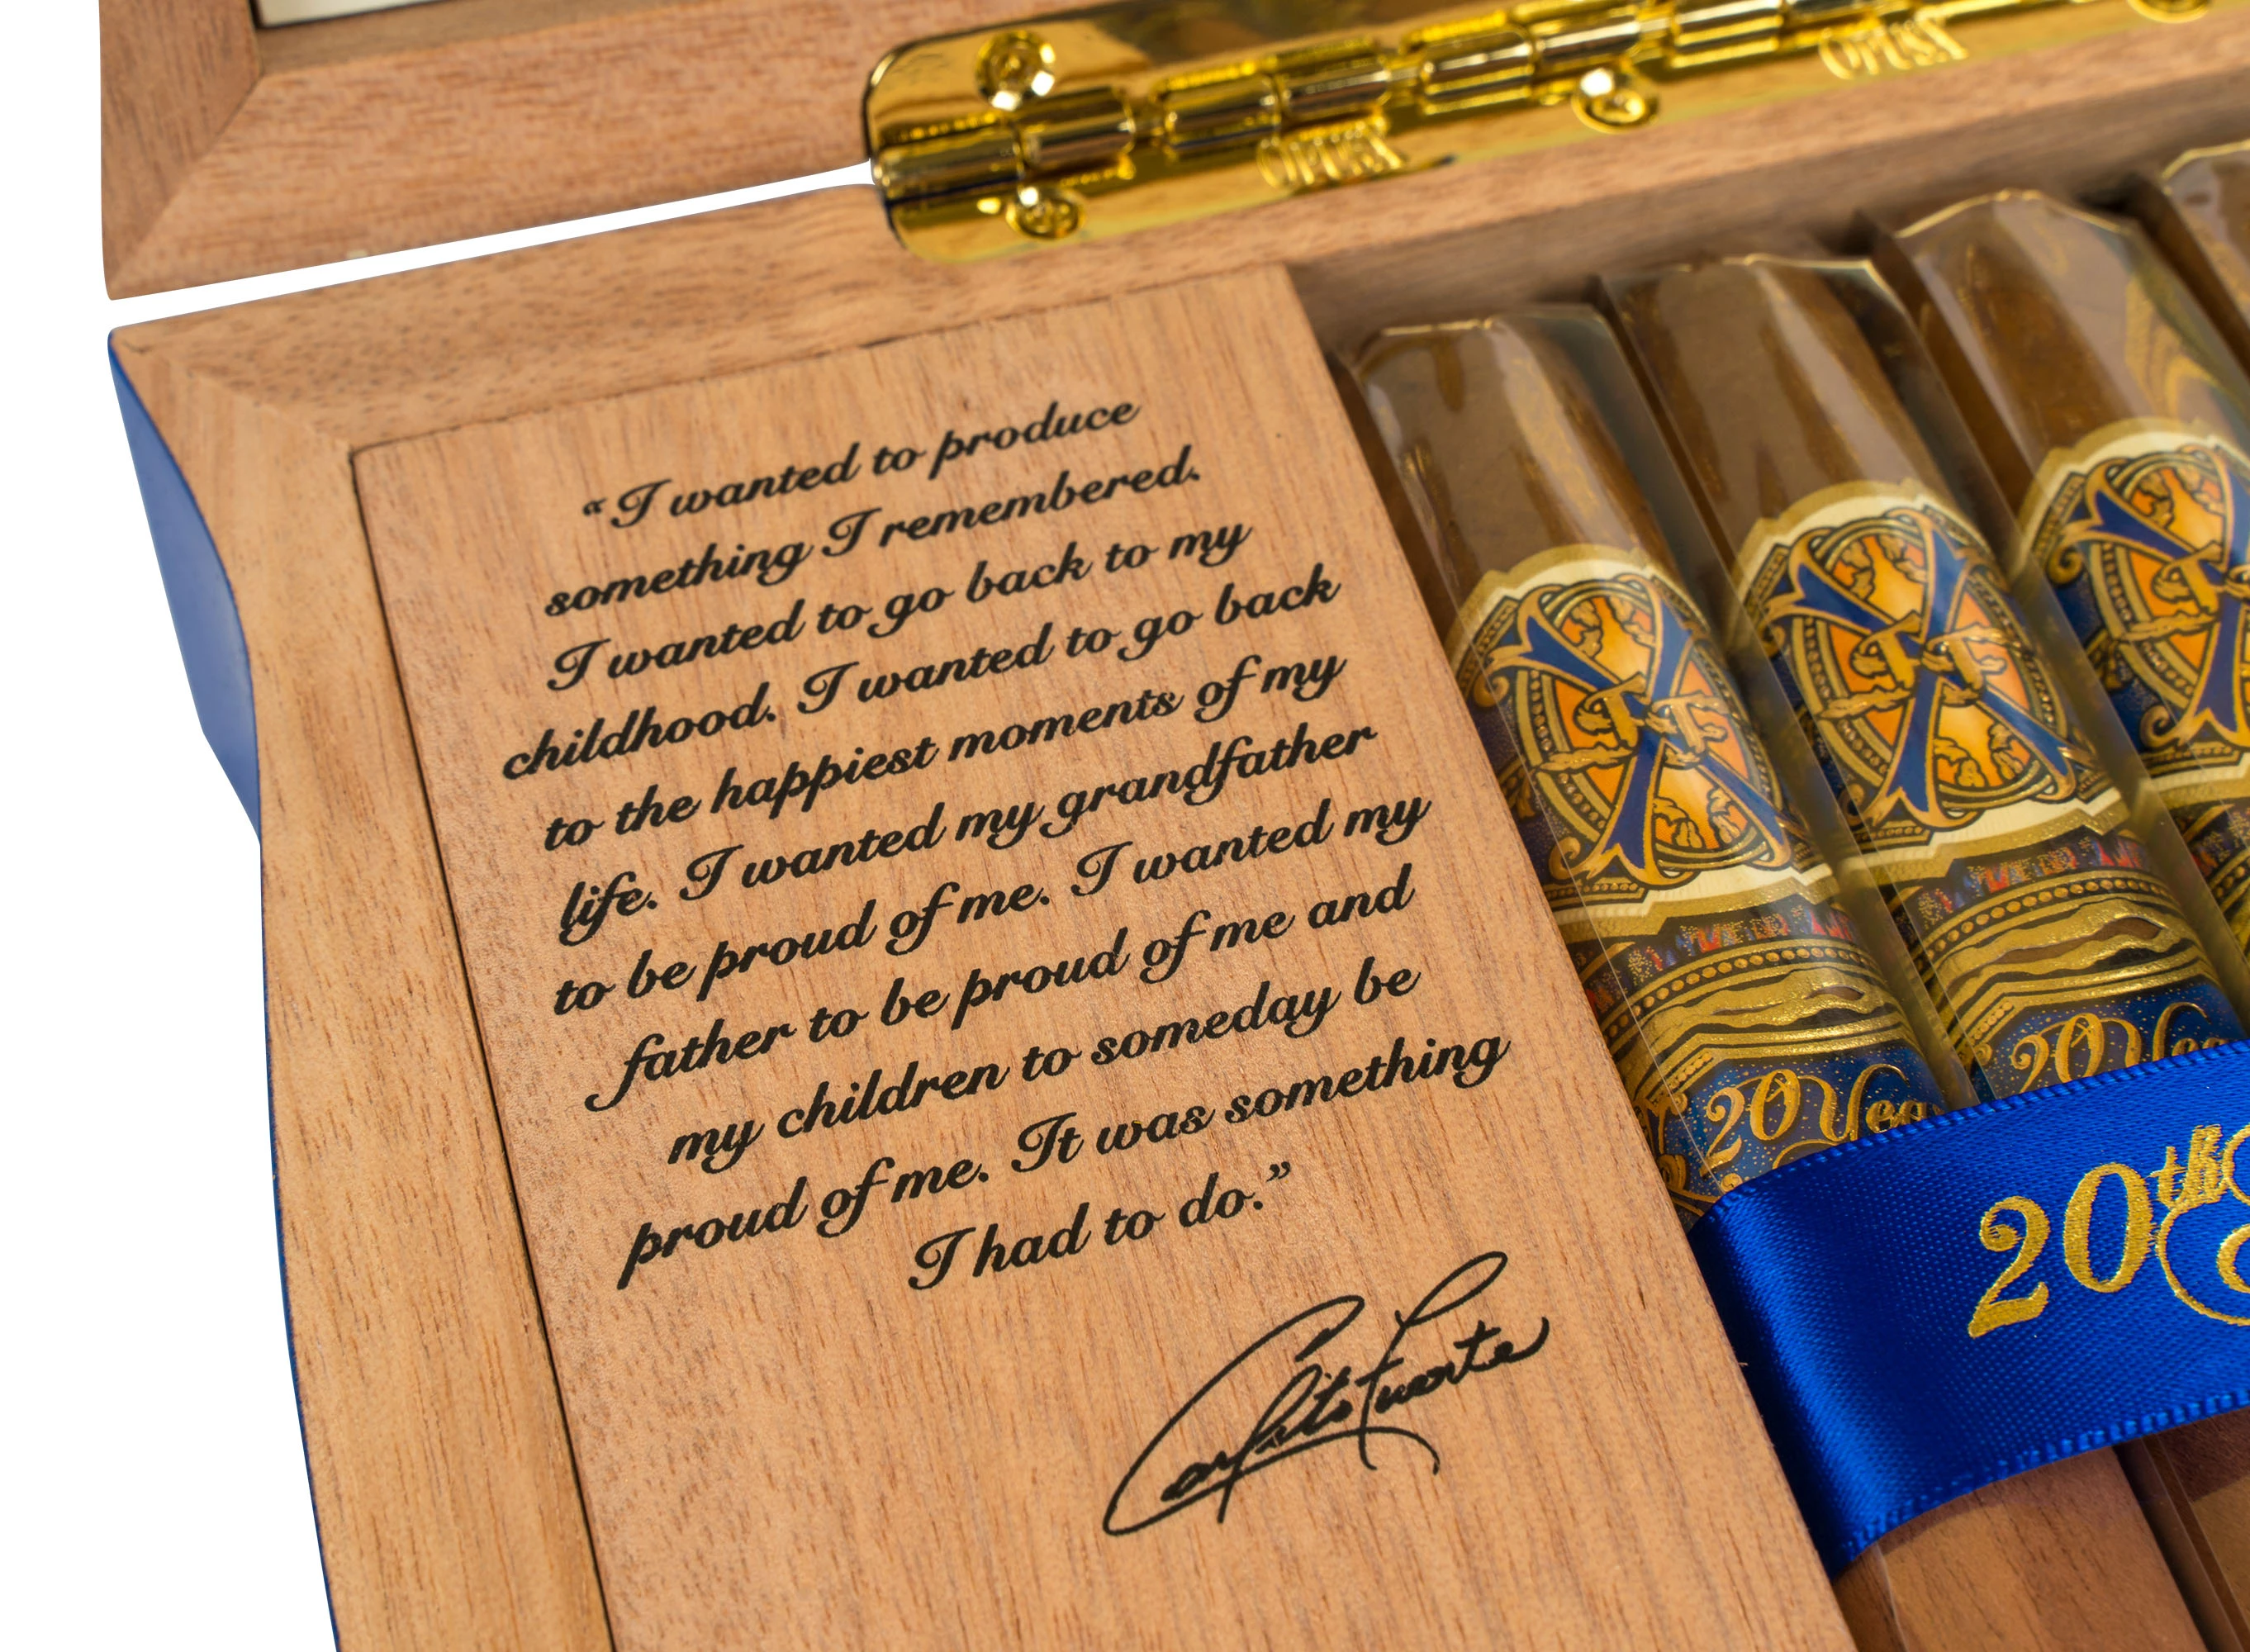 OPUSX
OPUSX
“I wanted to produce
something I remembered.
I wanted to go back to my
childhood. I wanted to go back
to the happiest moments of my
life. I wanted my grandfather
to be proud of me. I wanted my
father to be proud of me and
my children to someday be
proud of me. It was something
I had to do.”
Carlito Fuente
20 Yea
20 Yea
20th